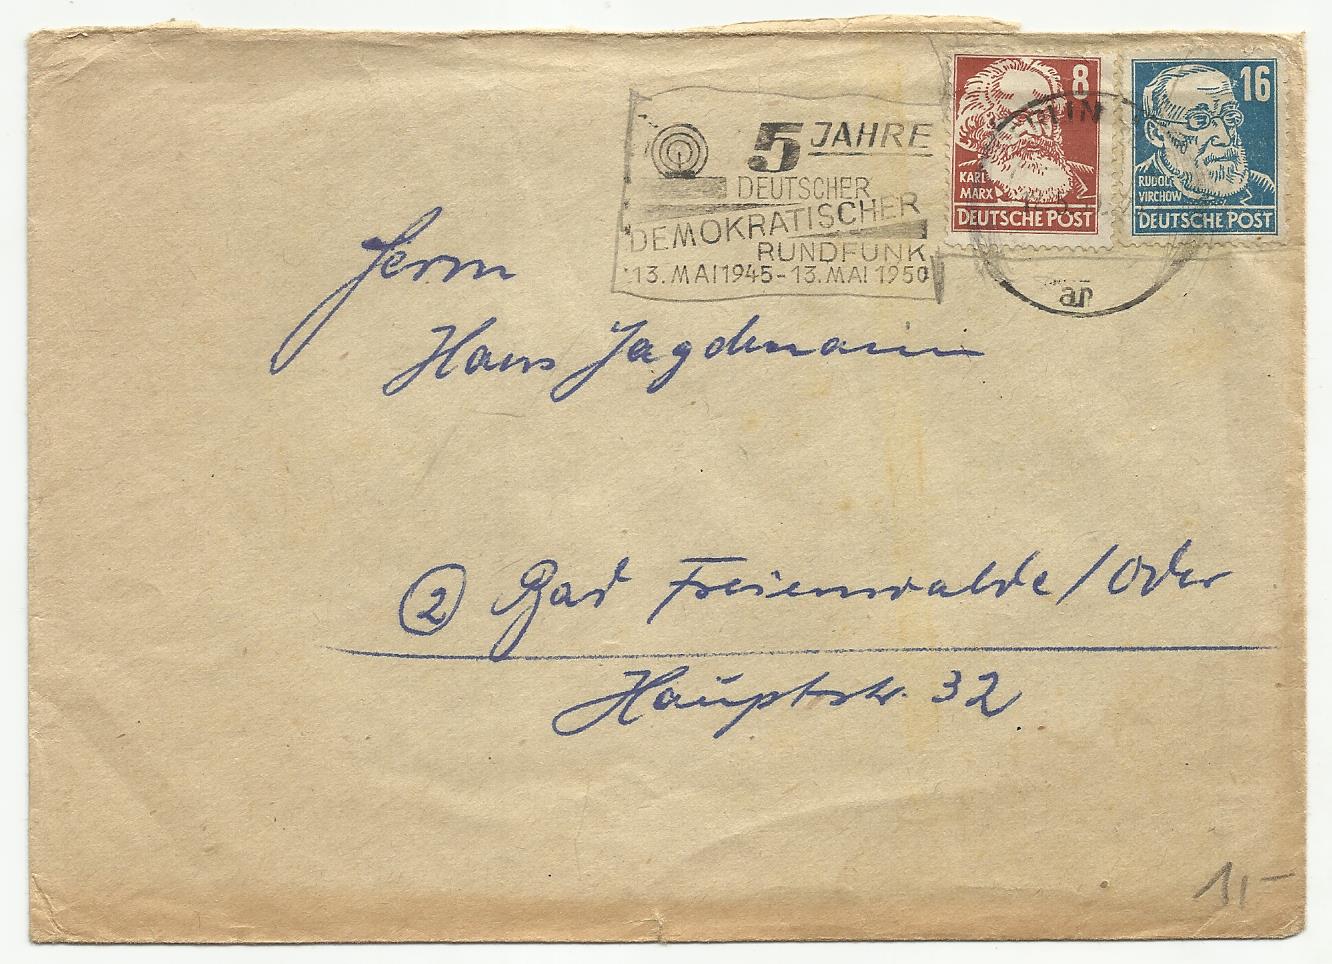 5 JAHRE
DEUTSCHER
DEMOKRATISCHER
RUNDFUNK
13. MAI 1945 - 13. MAI 1950
8
KARL
MARX
DEUTSCHE POST
16
RUDOLF
VIRCHOW
DEUTSCHE POST
an
Herrn
Hans Jagdmann
② Bad Freienwalde / Oder
Hauptstr. 32
1,-